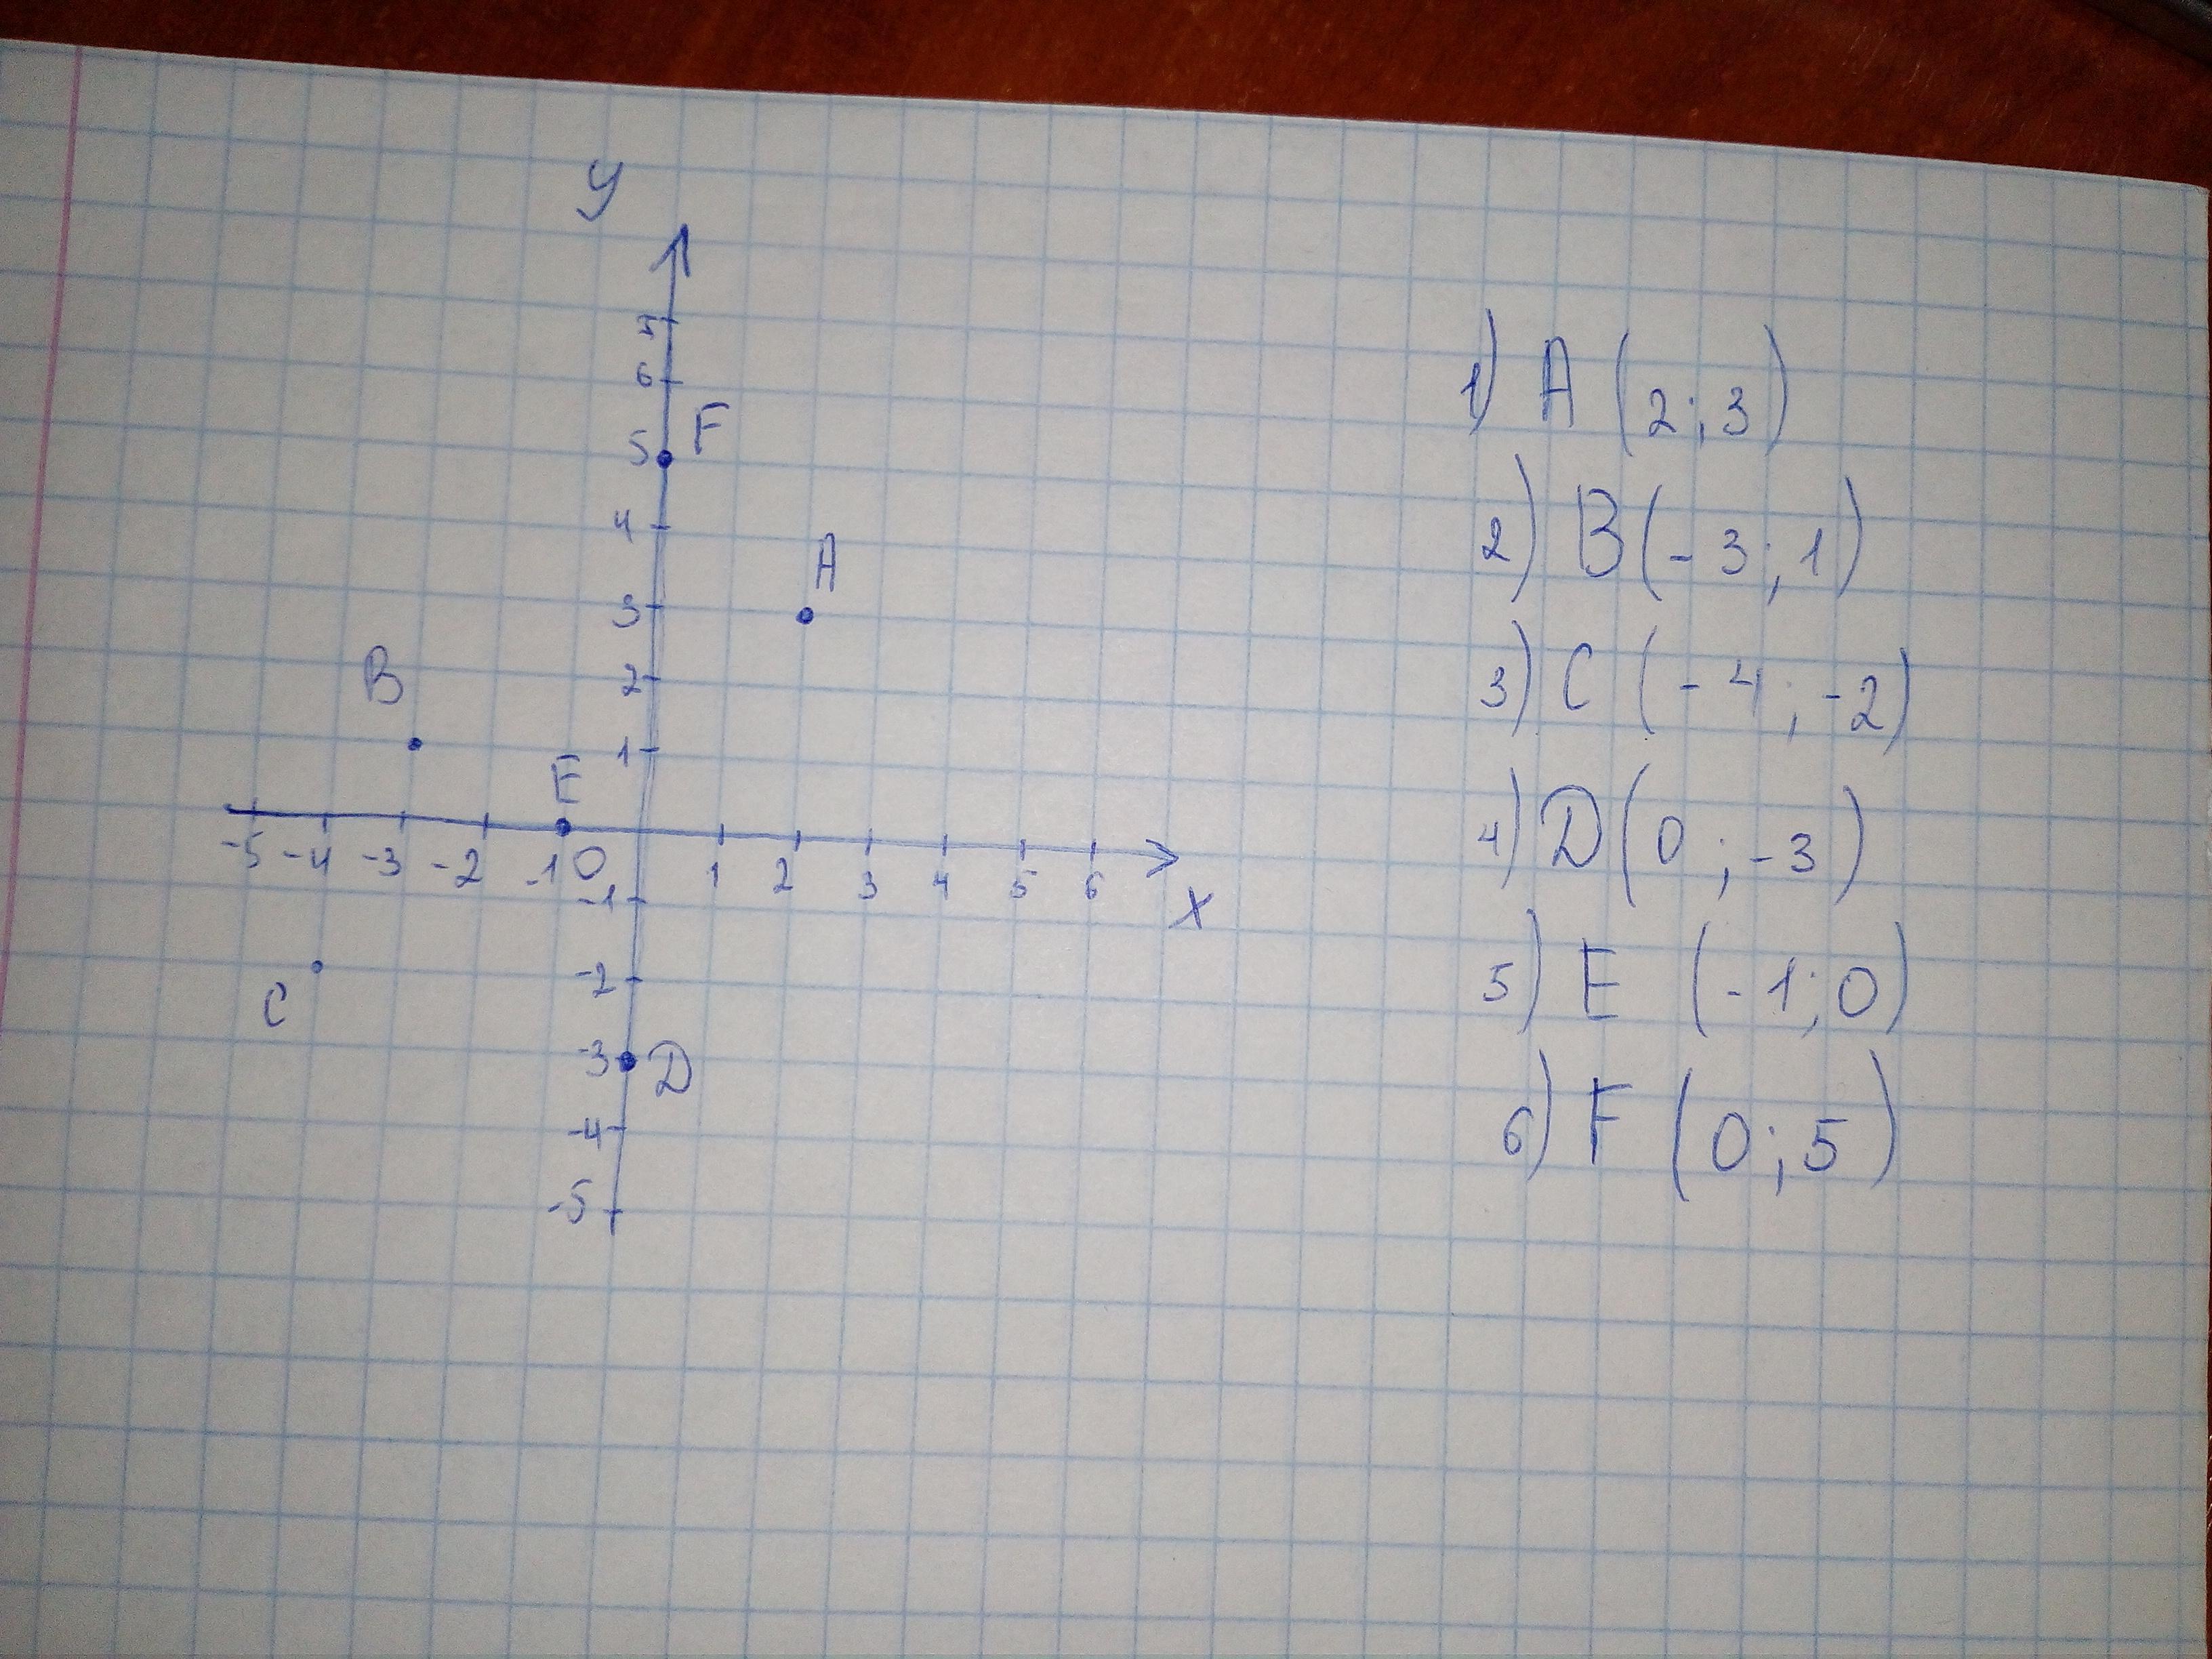 y
5
6
F
5
4
A
3
B
2
1
E
-5 -4 -3 -2 -1 0 1 2 3 4 5 6
x
-1
-2
C
-3 D
-4
-5
1) A (2; 3)
2) B (-3; 1)
3) C (-4; -2)
4) D (0; -3)
5) E (-1; 0)
6) F (0; 5)